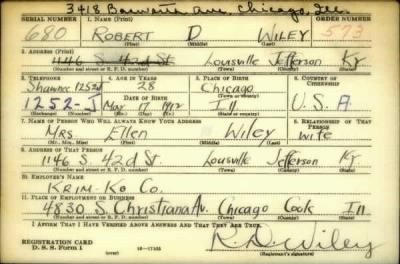 3418 Ave. Chicago, Ill.
SERIAL NUMBER 1. NAME (Print) ORDER NUMBER
680 ROBERT D WILEY 573
(First) (Middle) (Last)
2. ADDRESS (Print)
1146 S. 42d St. Lousville Jefferson Ky
(Number and street or R. F. D. number) (Town) (County) (State)
3. TELEPHONE 4. AGE IN YEARS 5. PLACE OF BIRTH 6. COUNTRY OF CITIZENSHIP
Shawnee 1252J 28 Chicago
DATE OF BIRTH (Town or county)
1252-J May 17 1912 Ill U. S. A.
(Exchange) (Number) (Mo.) (Day) (Yr.) (State or country)
7. NAME OF PERSON WHO WILL ALWAYS KNOW YOUR ADDRESS 8. RELATIONSHIP OF THAT PERSON
Mrs Ellen Wiley Wife
(Mr., Mrs., Miss) (First) (Middle) (Last)
9. ADDRESS OF THAT PERSON
1146 S. 42d St. Lousville Jefferson Ky
(Number and street or R. F. D. number) (Town) (County) (State)
10. EMPLOYER'S NAME
KRIM-KO Co.
11. PLACE OF EMPLOYMENT OR BUSINESS
4830 S. Christiana Av. Chicago Cook Ill
(Number and street or R. F. D. number) (Town) (County) (State)
I AFFIRM THAT I HAVE VERIFIED ABOVE ANSWERS AND THAT THEY ARE TRUE.
REGISTRATION CARD
D. S. S. Form 1 16-17105 R. D. Wiley
(Registrant's signature)